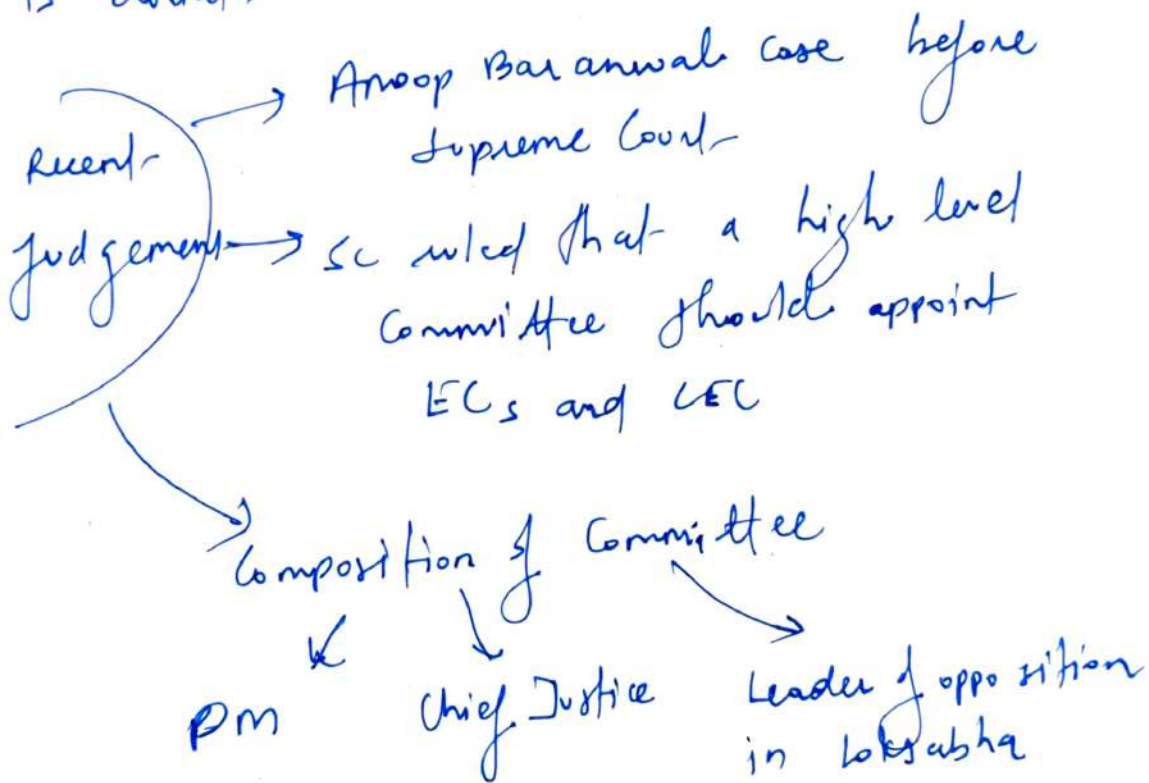 Recent
Judgement
Anoop Baranwal case before
Supreme Court
SC ruled that a high level
Committee should appoint
ECs and CEC
Composition of Committee
PM
Chief Justice
Leader of opposition
in Loksabha